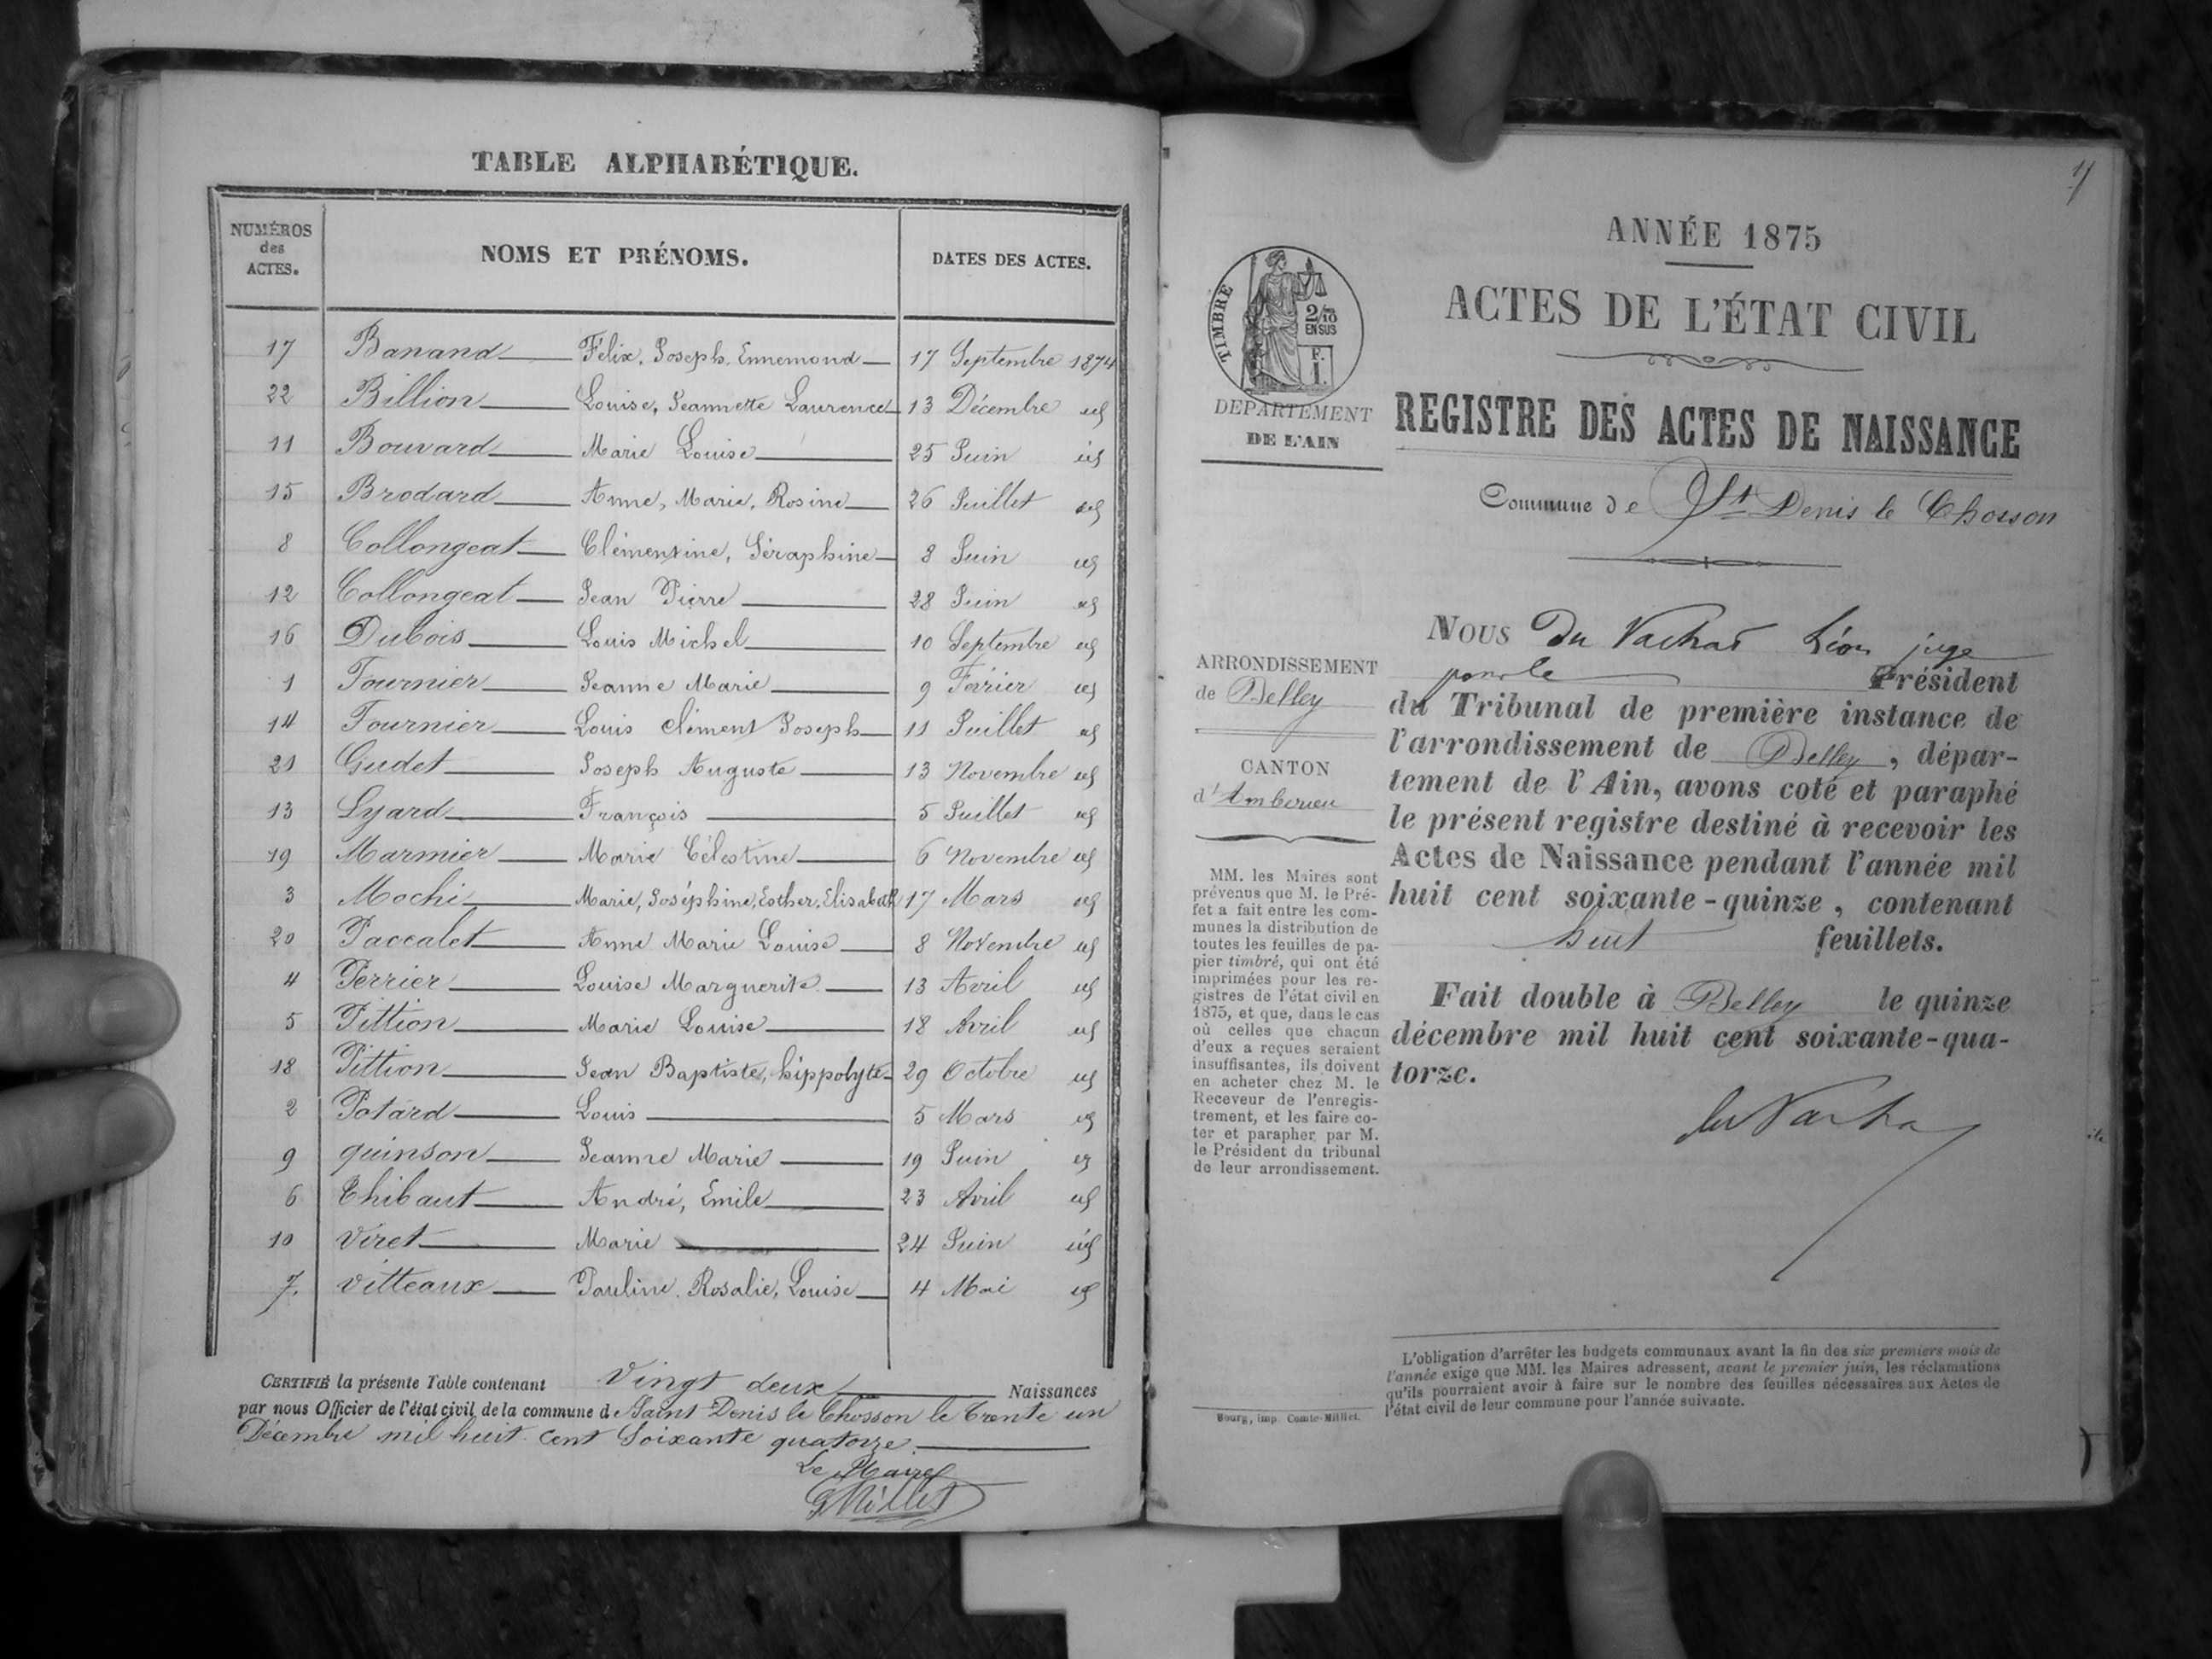 TABLE ALPHABÉTIQUE.
NUMÉROS des ACTES. NOMS ET PRÉNOMS. DATES DES ACTES.
17 Banand Félix, Joseph, Ennemond 17 Septembre 1874
22 Billion Louise, Jeannette Laurence 13 Décembre id
11 Bouvard Marie Louise 25 Juin id
15 Brodard Anne, Marie, Rosine 26 Juillet id
8 Collongeat Clémentine, Séraphine 8 Juin id
12 Collongeat Jean Pierre 28 Juin id
16 Dubois Louis Michel 10 Septembre id
1 Fournier Jeanne Marie 9 Février id
14 Fournier Louis Clément Joseph 11 Juillet id
21 Gudet Joseph Auguste 13 Novembre id
13 Lyard François 5 Juillet id
19 Marmier Marie Célestine 6 Novembre id
3 Mochi Marie, Joséphine, Esther, Elisabeth 17 Mars id
20 Paccalet Anne Marie Louise 8 Novembre id
4 Perrier Louise Marguerite 13 Avril id
5 Pittion Marie Louise 18 Avril id
18 Pittion Jean Baptiste, hippolyte 29 Octobre id
2 Potard Louis 5 Mars id
9 quinson Jeanne Marie 19 Juin id
6 Thibaut André, Emile 23 Avril id
10 Viret Marie 24 Juin id
7. Vitteaux Pauline, Rosalie, Louise 4 Mai id
CERTIFIÉ la présente Table contenant Vingt deux Naissances
par nous Officier de l'état civil de la commune de Saint Denis le Chosson le trente un
Décembre mil huit cent Soixante quatorze.
Le Maire
GMillet
1
ANNÉE 1875
ACTES DE L'ÉTAT CIVIL
TIMBRE
2/10
EN SUS
F.
1.
DEPARTEMENT
DE L'AIN
REGISTRE DES ACTES DE NAISSANCE
Commune de St Denis le Chosson
ARRONDISSEMENT
de Belley
CANTON
d'Amberieu
MM. les Maires sont
prévenus que M. le Pré-
fet a fait entre les com-
munes la distribution de
toutes les feuilles de pa-
pier timbré, qui ont été
imprimées pour les re-
gistres de l'état civil en
1875, et que, dans le cas
où celles que chacun
d'eux a reçues seraient
insuffisantes, ils doivent
en acheter chez M. le
Receveur de l'enregis-
trement, et les faire co-
ter et parapher par M.
le Président du tribunal
de leur arrondissement.
Bourg, imp. Comte-Milliet.
NOUS Du Vachat Léon juge
pour le Président
du Tribunal de première instance de
l'arrondissement de Belley, dépar-
tement de l'Ain, avons coté et paraphé
le présent registre destiné à recevoir les
Actes de Naissance pendant l'année mil
huit cent soixante-quinze, contenant
huit feuillets.
Fait double à Belley le quinze
décembre mil huit cent soixante-qua-
torze.
du Vachat
L'obligation d'arrêter les budgets communaux avant la fin des six premiers mois de
l'année exige que MM. les Maires adressent, avant le premier juin, les réclamations
qu'ils pourraient avoir à faire sur le nombre des feuilles nécessaires aux Actes de
l'état civil de leur commune pour l'année suivante.